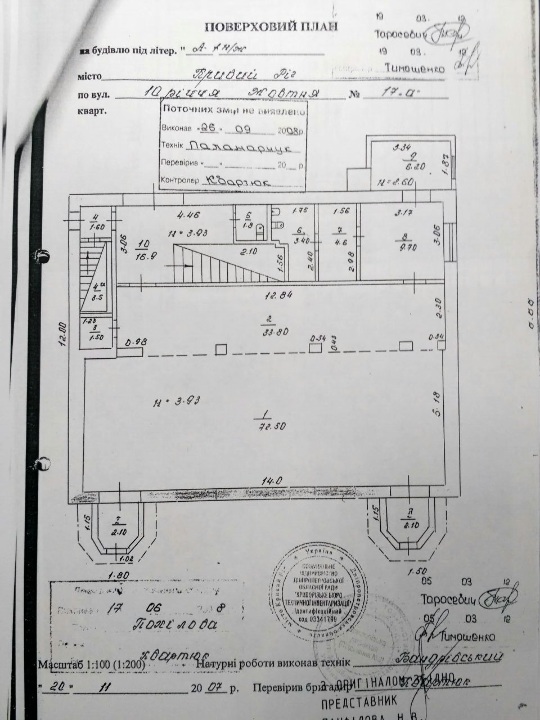 ПОВЕРХОВИЙ ПЛАН
19 03. 12
Тарасевич
на будівлю під літер. " А-1 н/ж
Тимошенко
місто Кривий Ріг
по вул. 10 річчя Жовтня № 17-а
кварт.
Поточних змін не виявлено
Виконав "26" 09 2008р
Технік Паламарчук
Перевірив "-" 20 р.
Контролер Квартюк
3.34
9
6.20
1.87
н=2.60
4
1.60
4.46
5
1.8
1.75
1.56
3.17
н=3.93
3.06
10
16.9
6
3.40
7
4.6
8
9.70
3.06
2.10
1.56
2.40
2.98
4а
3.5
12.84
2.30
1.23
3
1.50
2
33.80
12.80
0.98
0.34
0.43
0.34
н=3.93
1
72.50
5.18
14.0
1.15
I
2.10
1.02
1.80
1.15
II
2.10
1.50
Україна
КРИВОРІЗЬКЕ БЮРО
ТЕХНІЧНОЇ ІНВЕНТАРИЗАЦІЇ
Ідентифікаційний
код 03341799
05 03 12
Тарасевич
05 03 12
Тимошенко
17 06 8
Похілова
Квартюк
Масштаб 1:100 (1:200) Натурні роботи виконав технік Бандрівський
" 20 " 11 2007 р. Перевірив бригадир Квартюк
З ОРИГІНАЛОМ ЗГІДНО
ПРЕДСТАВНИК